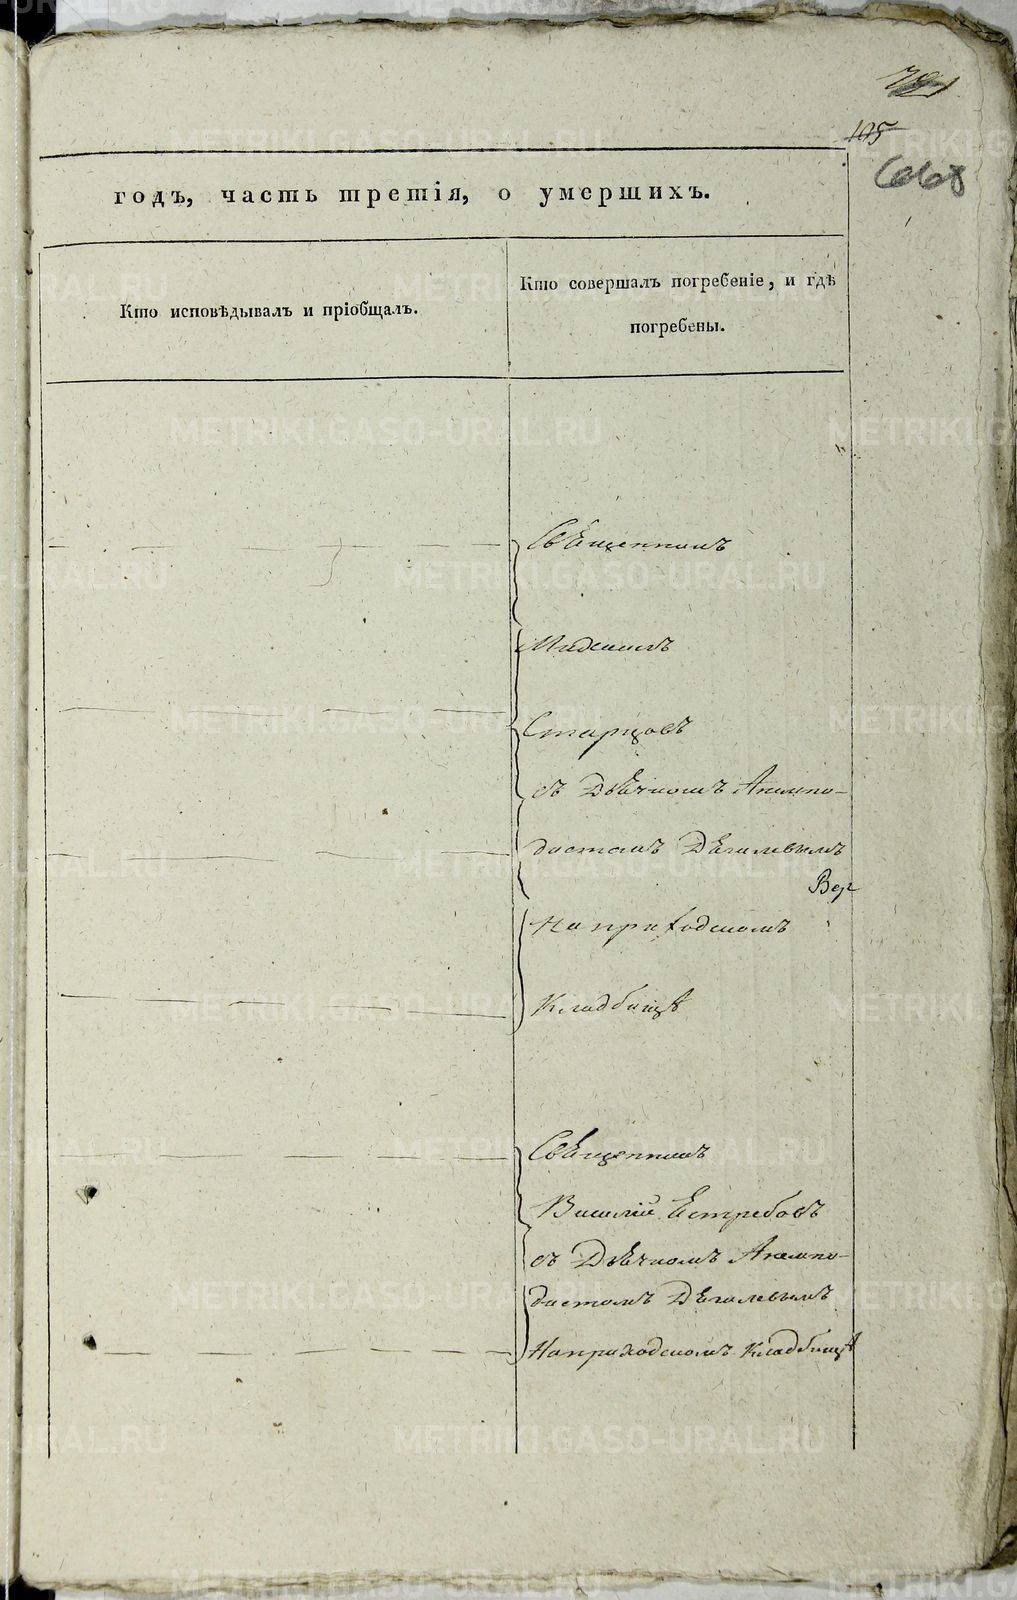 105
668
годъ, часть третія, о умершихъ.
Кто исповѣдывалъ и пріобщалъ.
Кто совершалъ погребеніе, и гдѣ
погребены.
Священникъ
Старцовъ
съ Дьячкомъ Акимпо-
дистомъ Дягилевымъ
Вер
На приходскомъ
Кладбищѣ
Священникъ
Василій Ястребовъ
съ Дьячкомъ Акимпо-
дистомъ Дягилевымъ
На приходскомъ Кладбищѣ
METRIKI.GASO-URAL.RU